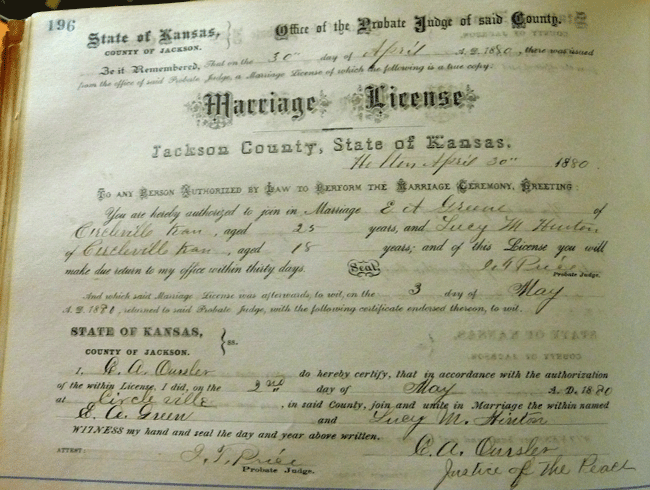 196
State of Kansas,
COUNTY OF JACKSON.
Office of the Probate Judge of said County.
Be it Remembered, That on the 30" day of April A. D. 1880, there was issued
from the office of said Probate Judge, a Marriage License of which the following is a true copy:
Marriage License
Jackson County, State of Kansas.
Holton April 30" 1880.
TO ANY PERSON AUTHORIZED BY LAW TO PERFORM THE MARRIAGE CEREMONY, GREETING:
You are hereby authorized to join in Marriage E A Greene of
Circleville Kan, aged 25 years, and Lucy M Hinton
of Circleville Kan, aged 18 years; and of this License you will
make due return to my office within thirty days. Seal Price
Probate Judge.
And which said Marriage License was afterwards, to wit, on the 3 day of May
A. D. 1880, returned to said Probate Judge, with the following certificate endorsed thereon, to wit.
STATE OF KANSAS,
COUNTY OF JACKSON. ss.
I, C. A. Oursler do hereby certify, that in accordance with the authorization
of the within License, I did, on the 2nd day of May A. D. 1880
at Circleville, in said County, join and unite in Marriage the within named
E. A. Green and Lucy M. Hinton
WITNESS my hand and seal the day and year above written.
C. A. Oursler
ATTEST: Price Justice of The Peace
Probate Judge.